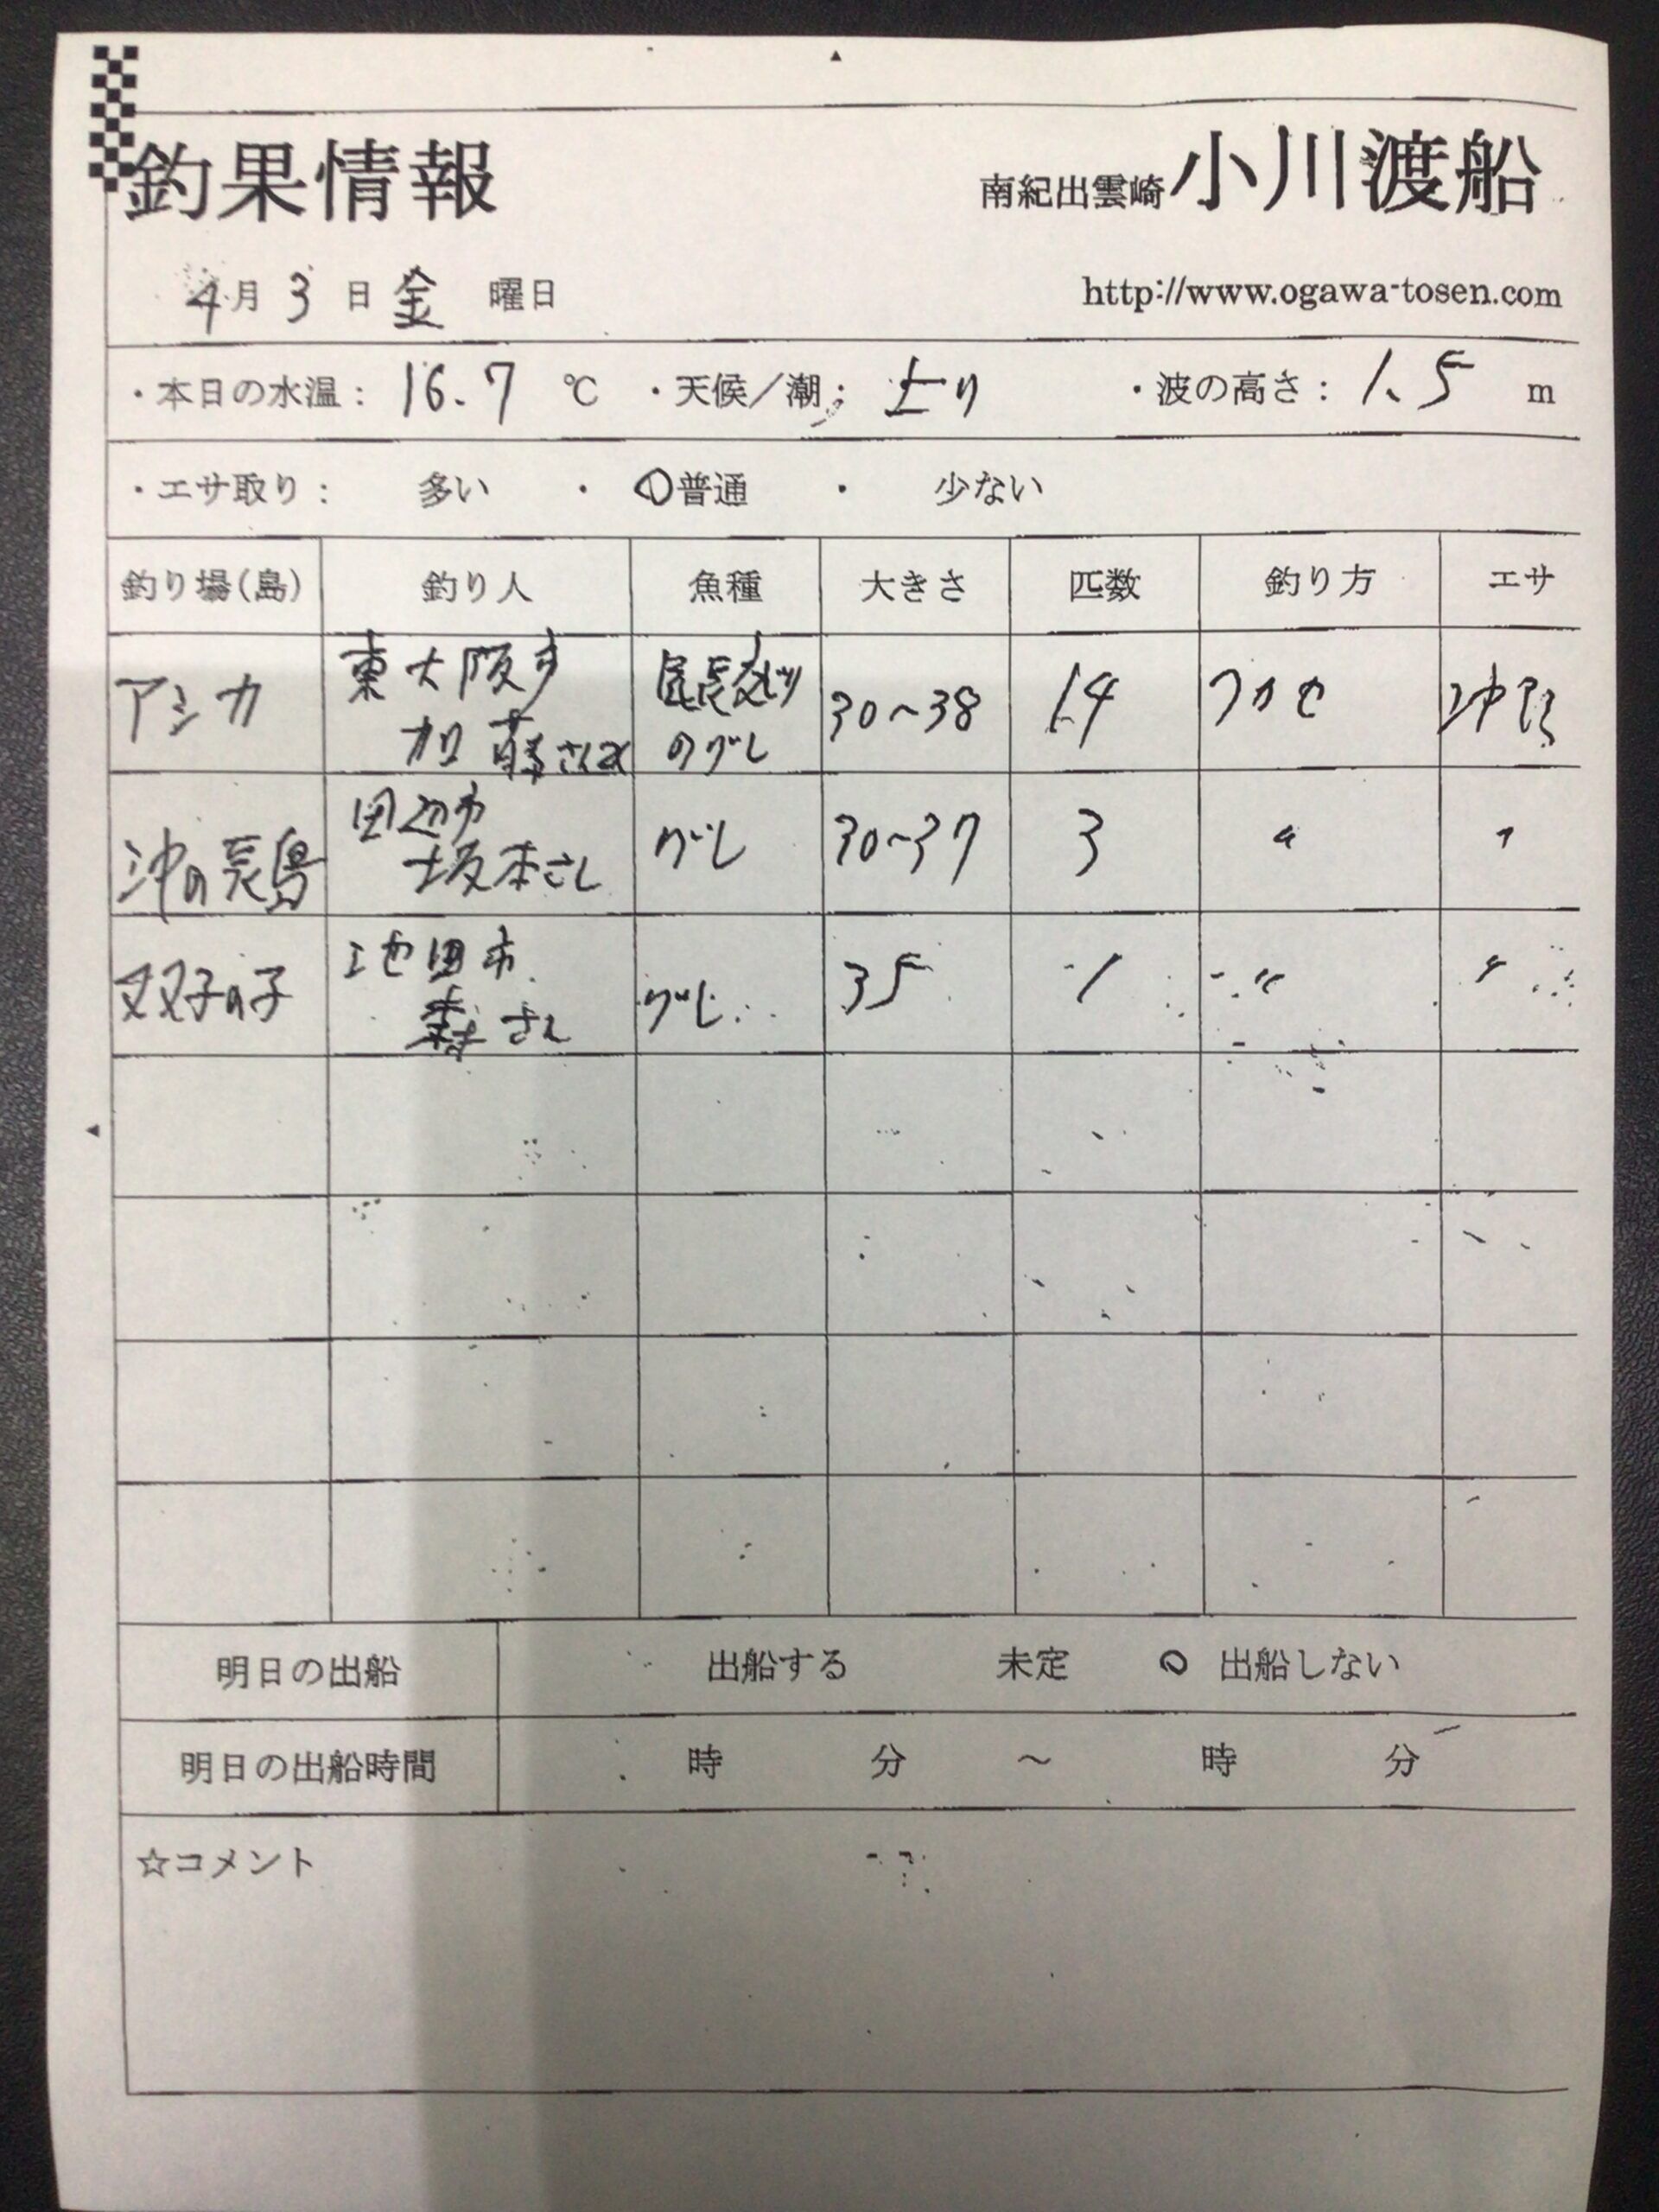 釣果情報
南紀出雲崎小川渡船
4月3日金曜日
http://www.ogawa-tosen.com
・本日の水温：16.7℃ ・天候／潮； 上り ・波の高さ：1.5m
・エサ取り： 多い ・ 普通 ・ 少ない
釣り場(島) 釣り人 魚種 大きさ 匹数 釣り方 エサ
アシカ 東大阪市 尾長 30～38 14 フカセ 沖アミ
加藤さん のグレ
沖の長島 田辺市 グレ 30～37 3 〃 〃
坂本さん
双子の子 池田市 グレ 35 1 〃 〃
森さん
明日の出船 出船する 未定 出船しない
明日の出船時間 時 分 ～ 時 分
☆コメント